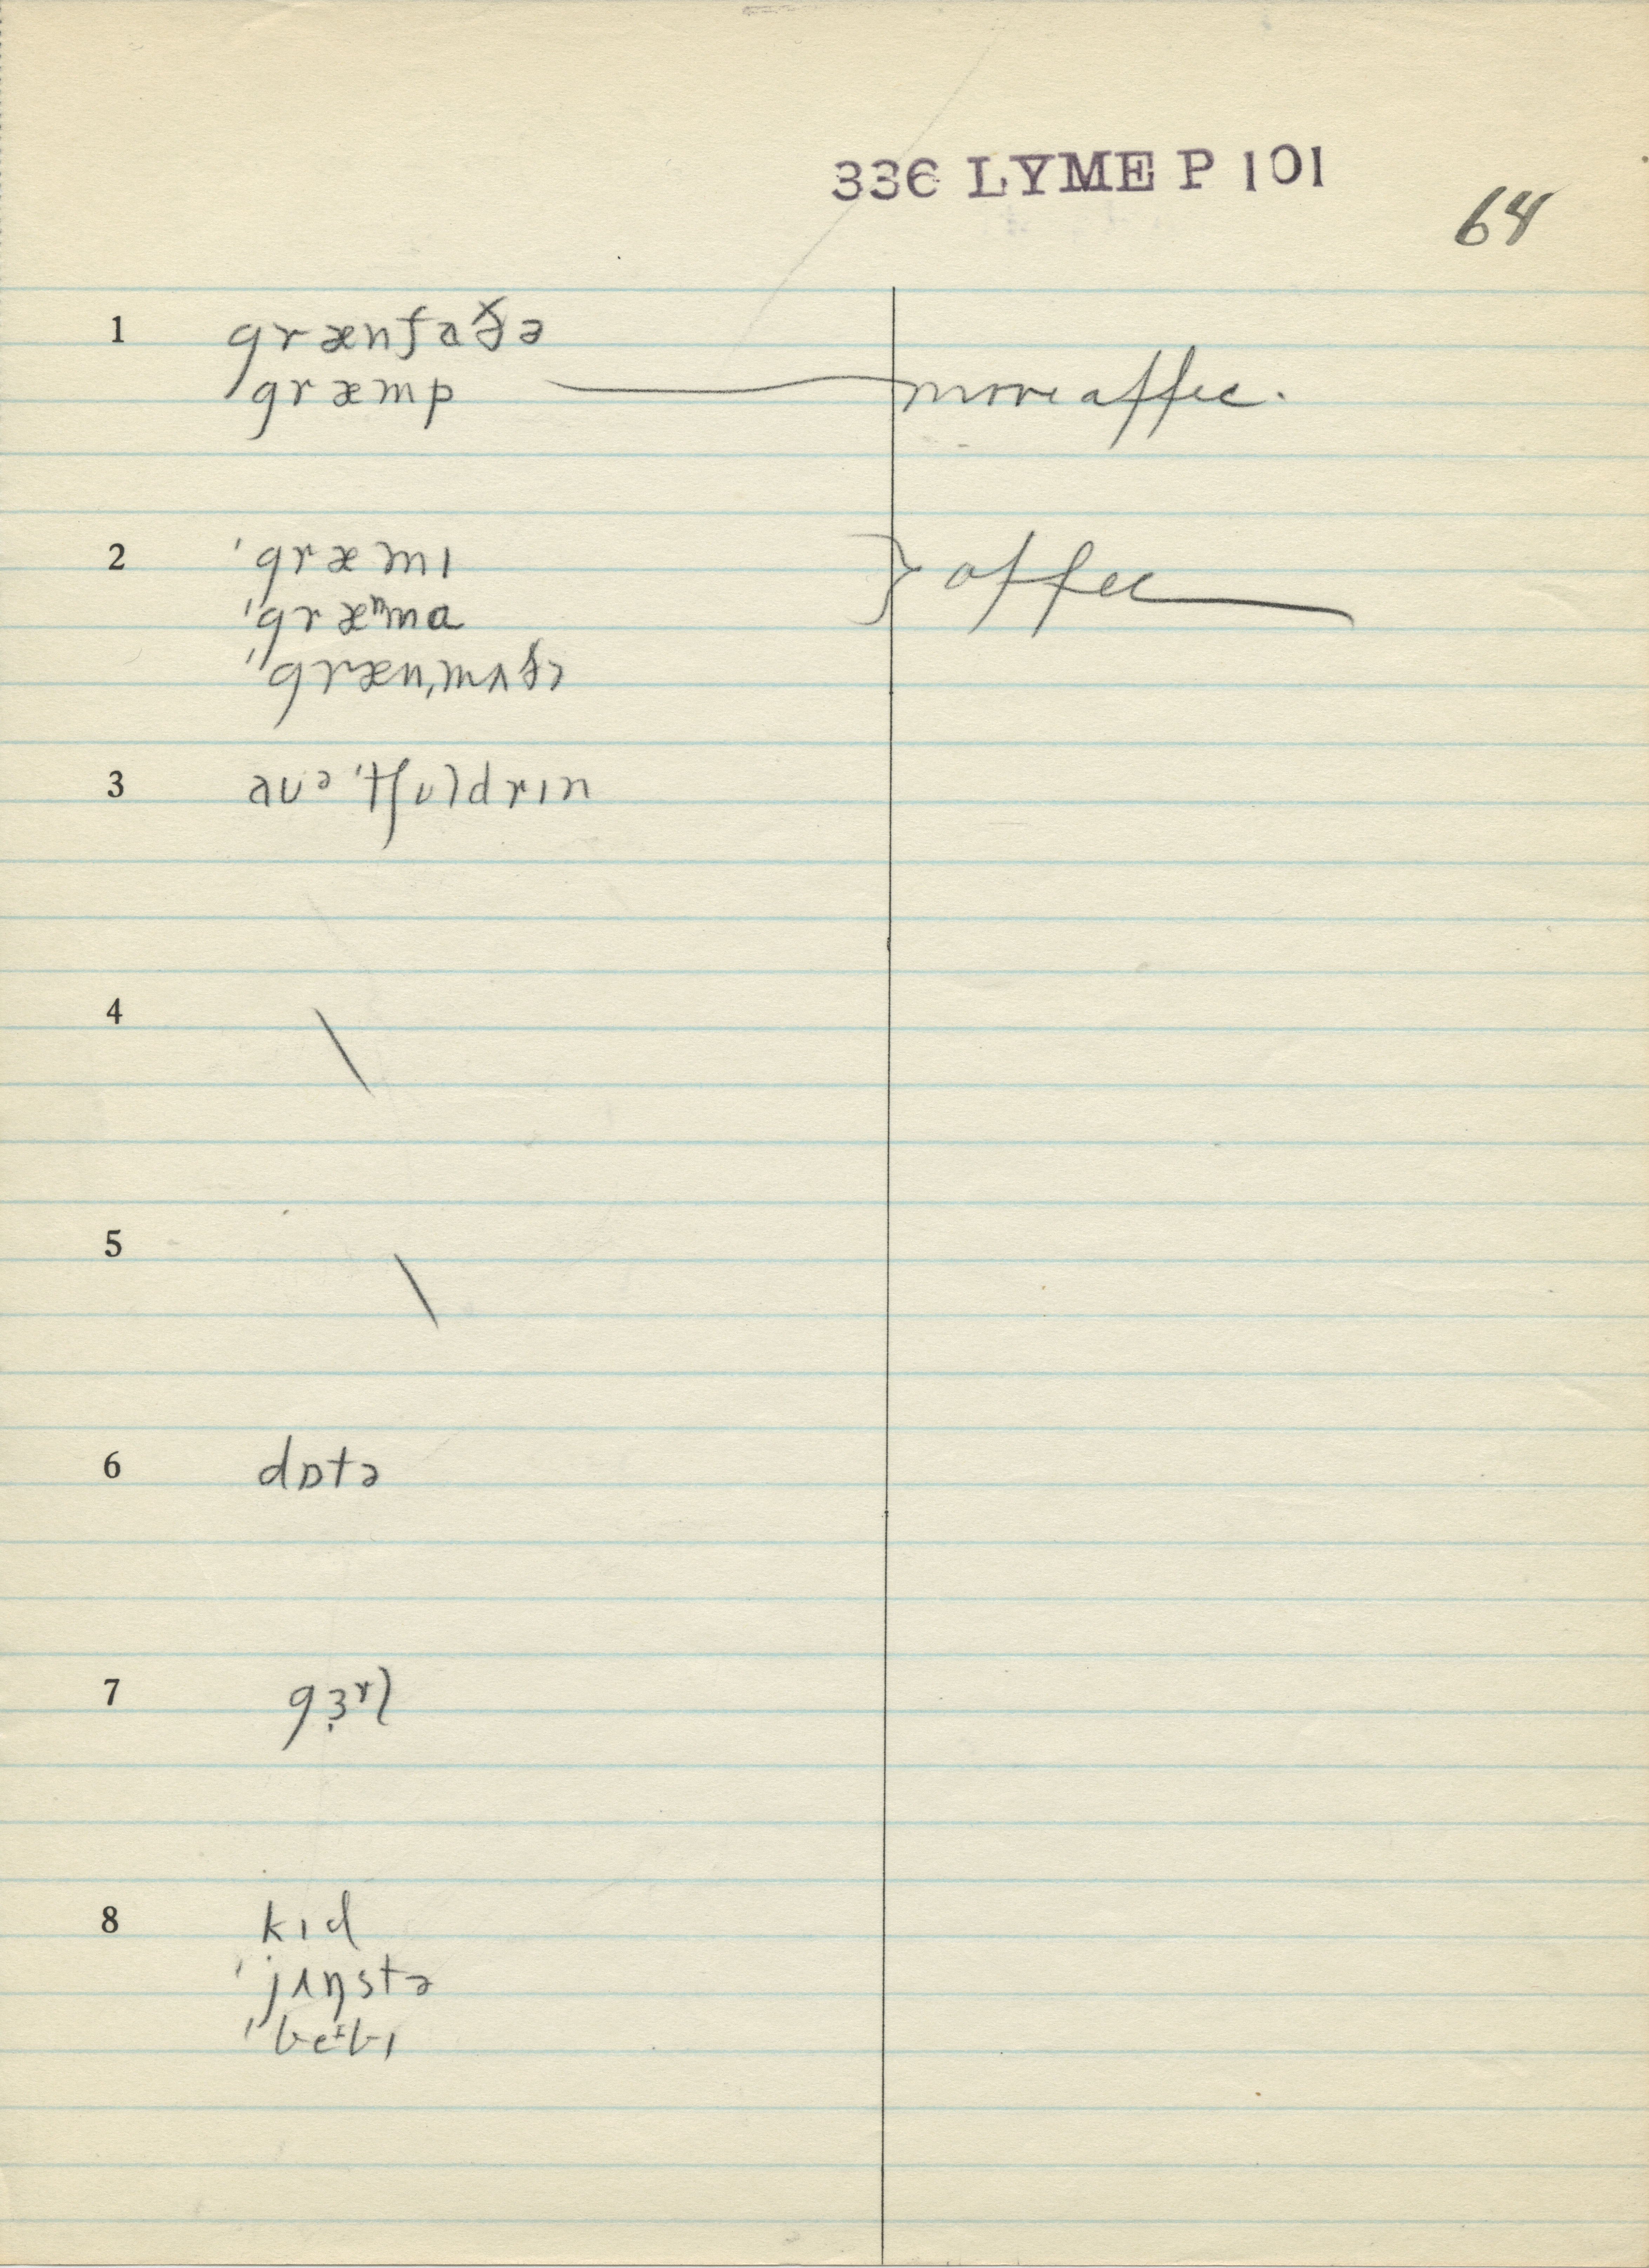 336 LYME P 101
64
1 grænfaðə
græmp more affec.
2 'græmɪ } affec
'græᵐma
'græn,mʌðə
3 aʊə 'tʃʊldrɪn
4 \
5 \
6 dɒtə
7 gɜ̣ʳl
8 kɪd
'jʌŋstə
'beᶦbɪ